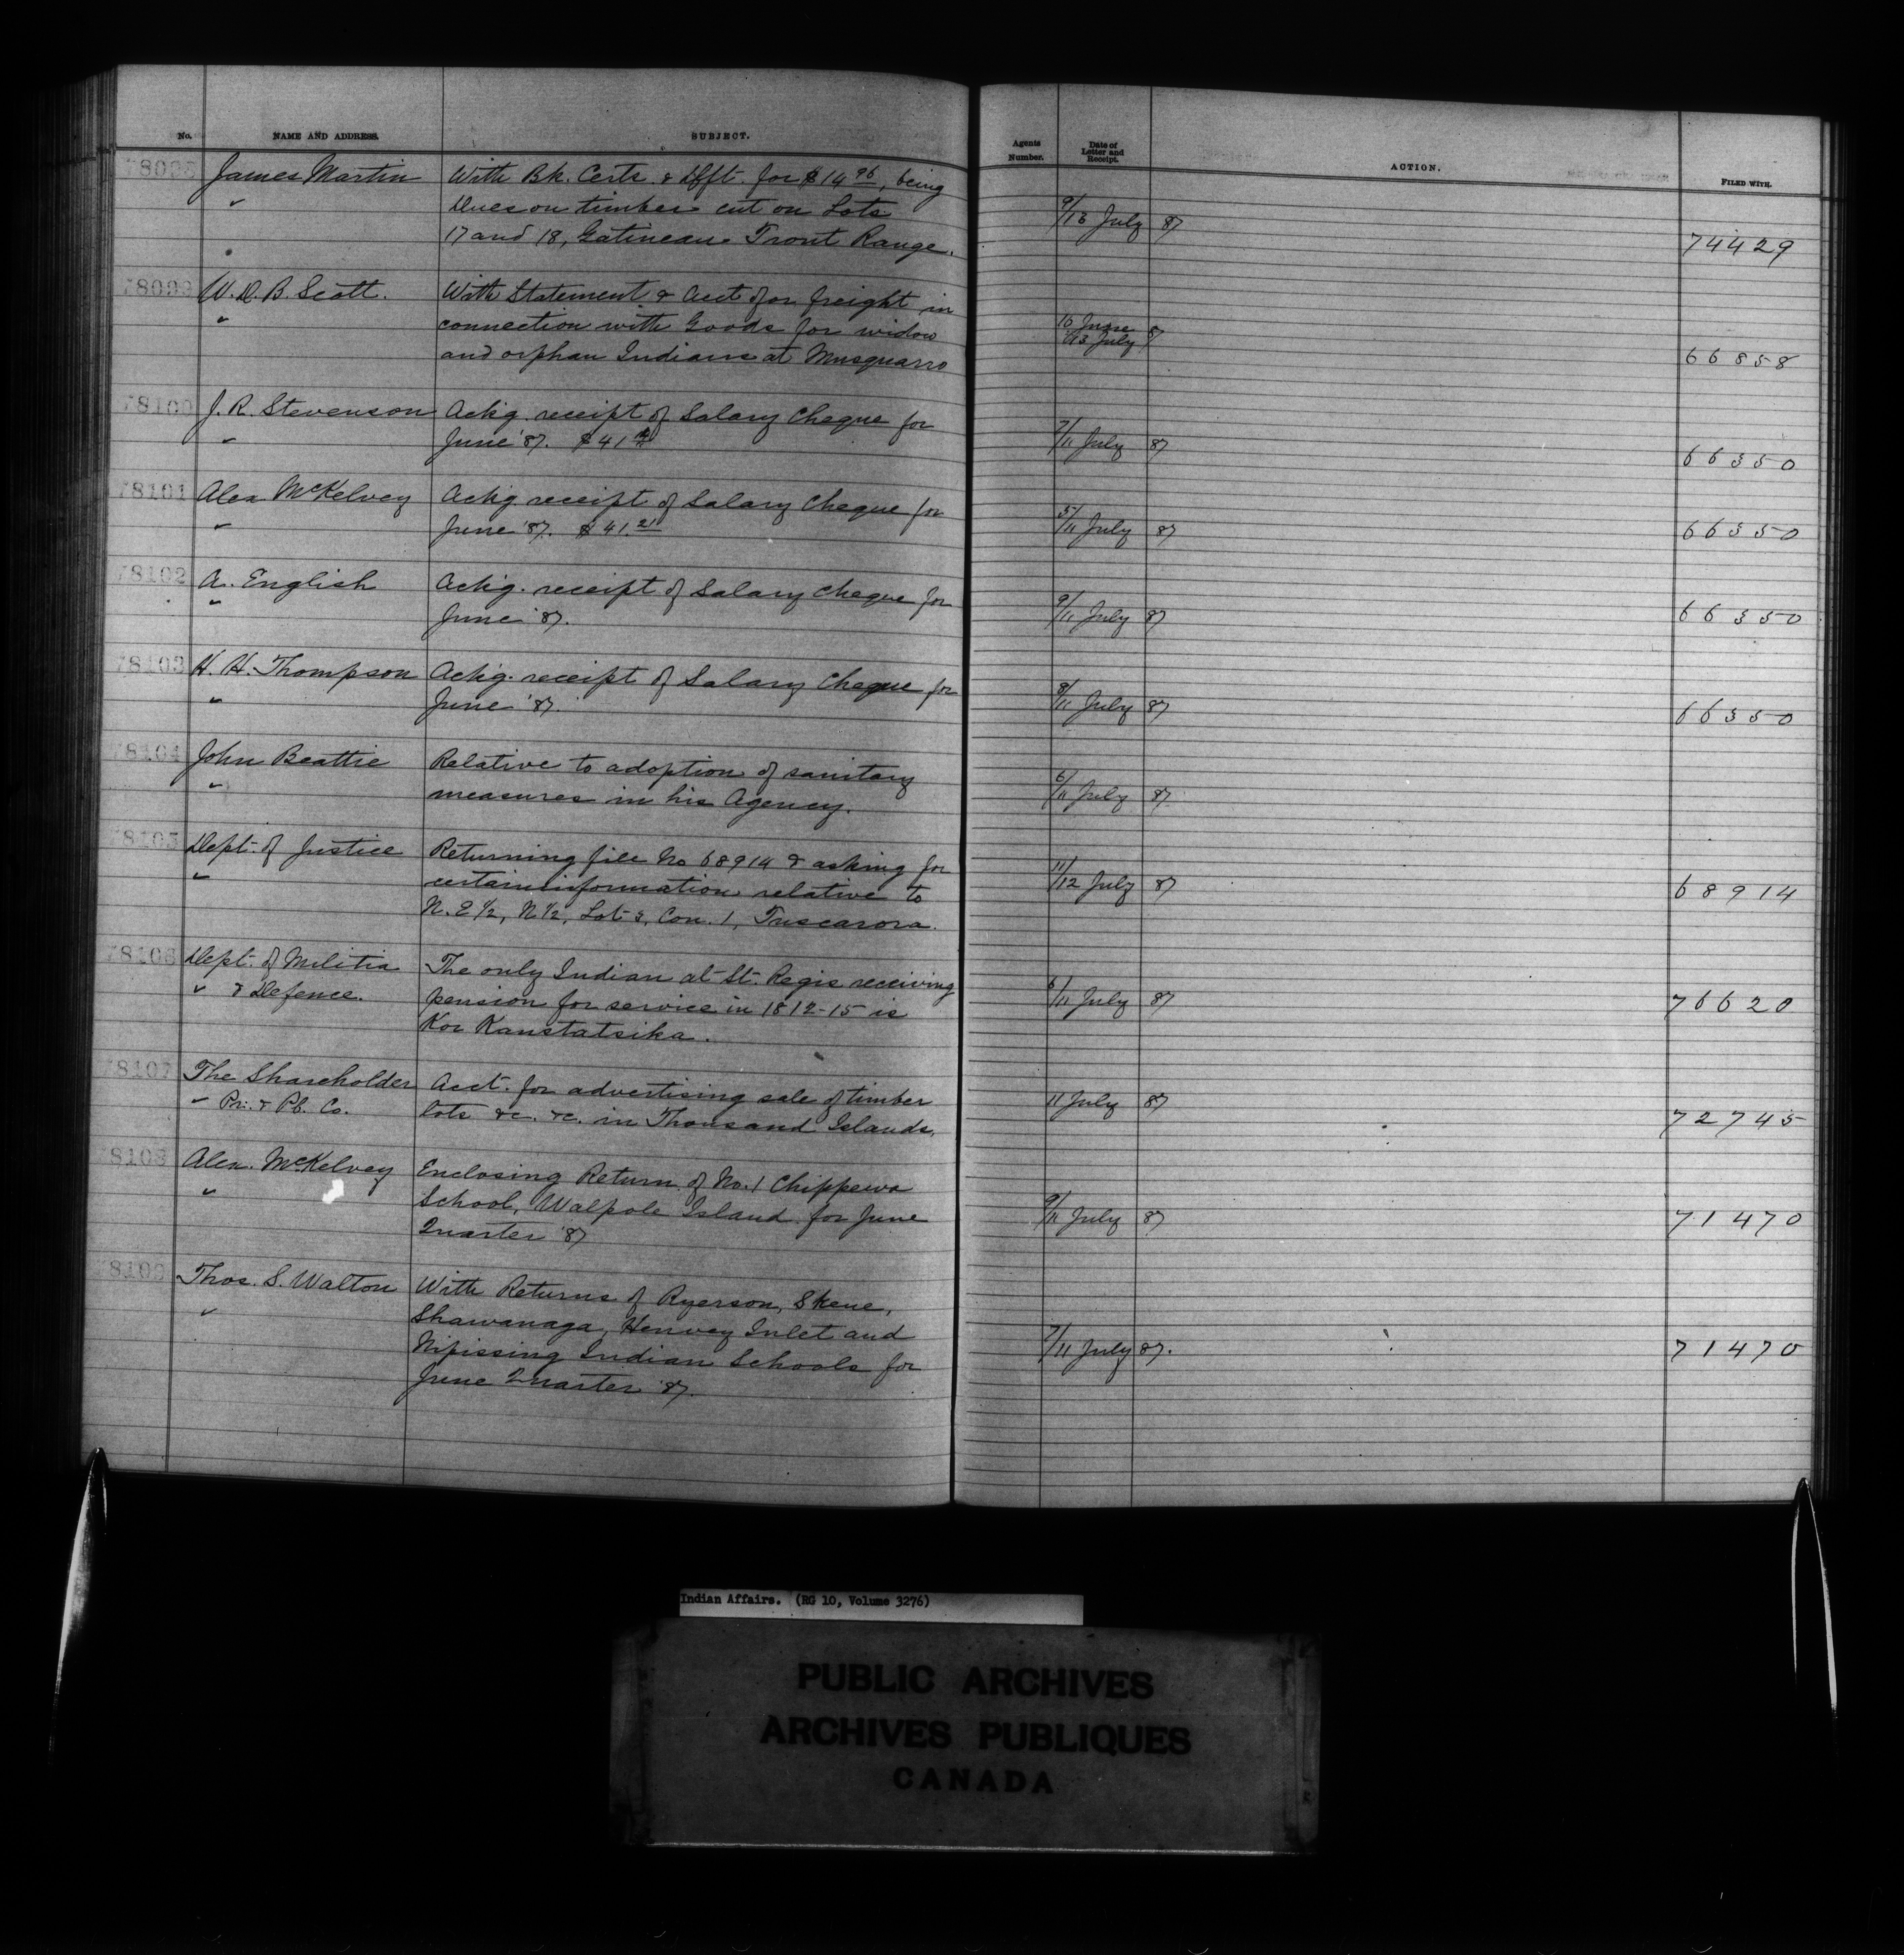 No. NAME AND ADDRESS. SUBJECT. Agents Number. Date of Letter and Receipt. ACTION. FILED WITH.
James Martin With Bk. Certs. & Dfft. for $14.96, being
" Dues on timber cut on Lots 9/13 July 87
17 and 18, Gatineau Front Range. 74429
W. D. B. Scott. With Statement & Acct for freight in
" connection with Goods for widow 10 June 87
and orphan Indians at Musquarro 13 July 66858
78100 J. R. Stevenson Ackg. receipt of Salary Cheque for
" June '87. $41 7/11 July 87 66350
78101 Alex McKelvey Ackg receipt of Salary Cheque for
" June '87. $41.21 5/11 July 87 66350
78102 A. English Ackg. receipt of Salary Cheque for
" June '87. 9/11 July 87 66350
78103 H. H. Thompson Ackg. receipt of Salary Cheque for
" June '87. 8/11 July 87 66350
78104 John Beattie Relative to adoption of sanitary
" measures in his Agency. 6/11 July 87.
78105 Dept. of Justice Returning file No 68914 & asking for
" certain information relative to 11/12 July 87 68914
N. E ½, N ½, Lot 3, Con. 1, Tuscarora.
78106 Dept. of Militia The only Indian at St. Regis receiving
" & Defence. pension for service in 1812-15 is 6/11 July 87 76620
Kor Kanstatsika.
78107 The Shareholder Acct. for advertising sale of timber
" Pri. & Pb. Co. lots &c. &c. in Thousand Islands. 11 July 87 72745
78108 Alex. McKelvey Enclosing Return of No. 1 Chippewa
" School, Walpole Island for June 9/11 July 87 71470
Quarter '87
78109 Thos. S. Walton With Returns of Ryerson, Skene,
" Shawanaga, Henvey Inlet and 7/11 July 87. 71470
Nipissing Indian Schools for
June Quarter '87.
Indian Affairs. (RG 10, Volume 3276)
PUBLIC ARCHIVES
ARCHIVES PUBLIQUES
CANADA